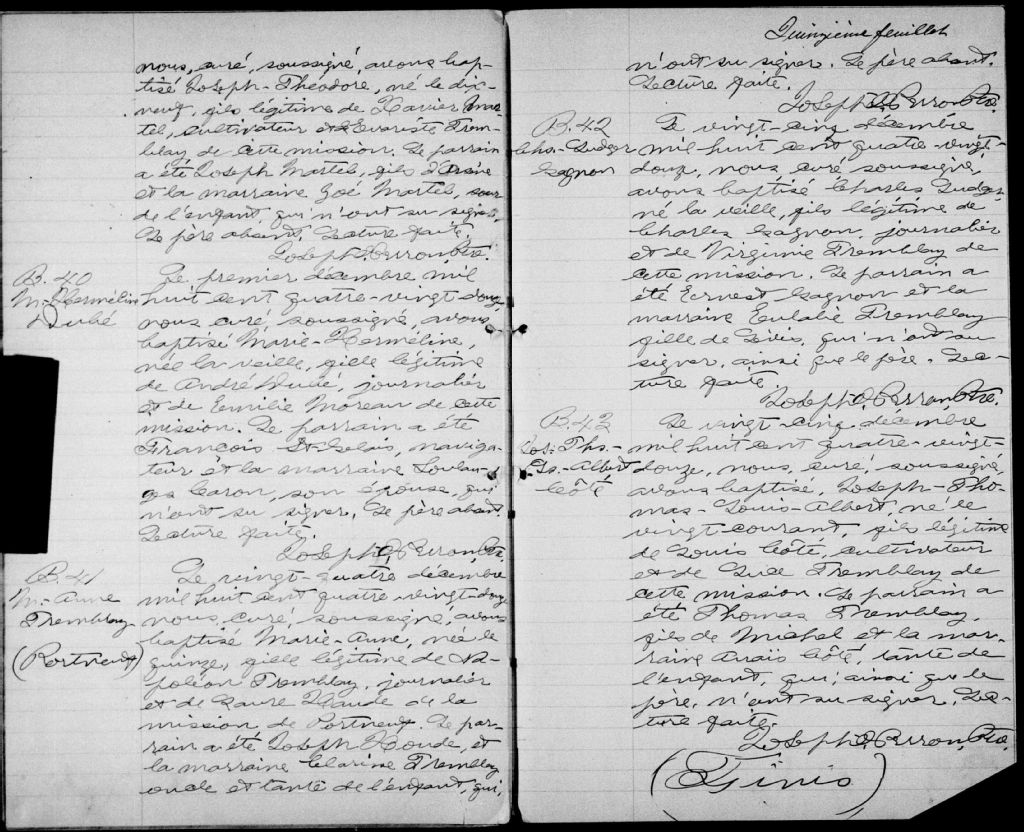 nous, curé, soussigné, avons bap-
tisé Joseph-Théodore, né le dix-
neuf, fils légitime de Xavier Mar-
tel, cultivateur et d'Evariste Trem-
blay de cette mission. Le parrain
a été Joseph Martel, fils d'Orsène
et la marraine Zoé Martel, sœur
de l'enfant qui n'ont su signer.
Le père absent. Lecture faite.
Joseph O. Perron Ptre.
B. 40
M.-Herméline
Dubé
Le premier décembre mil
huit cent quatre-vingt-douze,
nous curé, soussigné, avons
baptisé Marie-Herméline,
née la veille, fille légitime
de André Dubé, journalier
et de Emilie Moreau de cette
mission. Le parrain a été
François St-Gelais, naviga-
teur et la marraine Soulan-
ges Caron, son épouse, qui
n'ont su signer. Le père absent.
Lecture faite.
Joseph O. Perron Ptre.
B. 41
M.-Anne
Tremblay
(Portneuf)
Le vingt-quatre décembre
mil huit cent quatre vingt-douze
nous, curé, soussigné, avons
baptisé Marie-Anne, née le
quinze, fille légitime de Na-
poléon Tremblay, journalier
et de Laure Houde de la
mission de Portneuf. Le par-
rain a été Joseph Houde, et
la marraine Clarine Tremblay
oncle et tante de l'enfant, qui,
Quinzième feuillet
n'ont su signer. Le père absent.
Lecture faite.
Joseph O. Perron Ptre.
B. 42
Chs.-Ludger
Gagnon
Le vingt-cinq décembre
mil huit cent quatre-vingt-
douze, nous, curé, soussigné,
avons baptisé Charles Ludger
né la veille, fils légitime de
Charles Gagnon, journalier
et de Virginie Tremblay de
cette mission. Le parrain a
été Ernest Gagnon et la
marraine Eulalie Tremblay
fille de Lévis, qui n'ont su
signer, ainsi que le père. Lec-
ture faite.
Joseph O. Perron Ptre.
B. 43
Jos.-Ths.-
Ls.-Albert
Côté
Le vingt-cinq décembre
mil huit cent quatre-vingt-
douze, nous, curé, soussigné,
avons baptisé, Joseph-Tho-
mas-Louis-Albert né le
vingt-courant, fils légitime
de Louis Côté, cultivateur
et de Luce Tremblay de
cette mission. Le parrain a
été Thomas Tremblay,
fils de Michel et la mar-
raine Anaïs Côté, tante de
l'enfant, qui, ainsi que le
père, n'ont su signer. Lec-
ture faite.
Joseph O. Perron, Ptre.
(Finis)